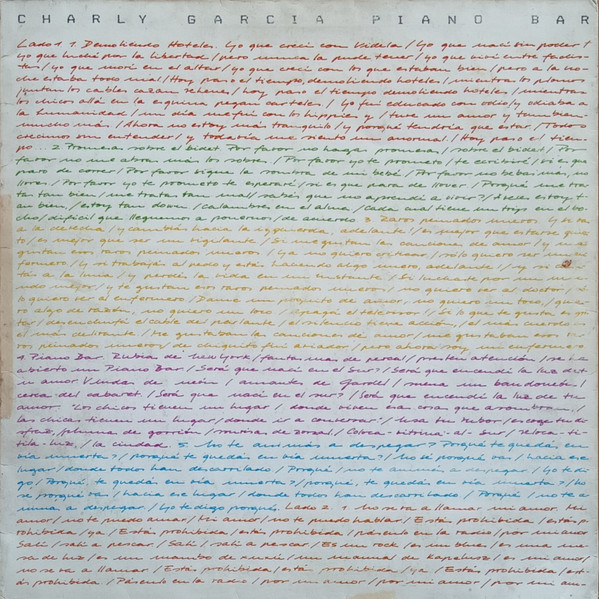 CHARLY GARCIA PIANO BAR
Lado 1 1 Demoliendo Hoteles. Yo que crecí con Videla / Yo que nací sin poder /
yo que luché por la libertad / pero nunca la pude tener / yo que viví entre facis-
tas / yo que morí en el altar / yo que crecí con los que estaban bien / pero a la no-
che estaba todo mal / Hoy pasó el tiempo, demoliendo hoteles / mientras los plomos
juntan los cables cazan rehenes / hoy pasó el tiempo demoliendo hoteles / mientras
los chicos allá en la esquina pegan carteles / Yo fui educado con odio / y odiaba a
la humanidad / un día me fui con los hippies y / tuve un amor y también
mucho más / Ahora estoy más tranquilo / y porqué tendría que estar. / Todos
crecimos sin entender / y todavía me siento un anormal. / Hoy pasó el tiem-
po... 2 Promesas sobre el bidet. Por favor no hagas promesas / sobre el bidet / Por
favor no me abras más los sobres / Por favor yo te prometo / te escribiré / si es que
paro de correr / Por favor sigue la sombra de mi bebé / Por favor no bebas más, no
llores / Por favor yo te prometo te esperaré / si es que para de llover / Porqué me tra-
tan tan bien / me tratas tan mal / sabés que no aprendí a vivir? / A veces estoy t-
an bien, / estoy tan down, / calambres en el alma / cada cual tiene un trip en el bo-
cho / difícil que lleguemos a ponernos / de acuerdo 3 Raros peinados nuevos. Y si va
a la derecha / y cambiás hacia la izquierda, adelante / es mejor que estarse quie-
to / es mejor que ser un vigilante / Si me gustan las canciones de amor / y me
gustan esos raros peinados nuevos / Ya no quiero criticar / sólo quiero ser un en-
fermero /
tás a la luna / y perdés la vida en un instante / Si luchaste por un mu-
ndo mejor / y te gustan esos raros peinados nuevos, / no quiero ver al doctor / só-
lo quiero ver al enfermero / Dame un poquito de amor, no quiero un toco, / quie-
ro algo de razón, no quiero un loco / Apagá el televisor / Si lo que te gusta es gri-
tar / desenchufá el cable del parlante / el silencio tiene acción, / el más cuerdo es
el más delirante. / Me gustaban las canciones de amor / me gustaban esos ra-
ros peinados nuevos / de chiquito fui aviador / pero ahora soy un enfermero
4 Piano Bar. Rubia de New York / fantasmas de percal / presten atención / se ha
abierto un Piano Bar / Será que nací en el Sur? / Será que encendí la luz de t-
u amor Vendas de neón / amantes de Gardel / suena un bandoneón /
cerca del cabaret. / Será que nací en el sur? / Será que encendí la luz de tu
amor. Los chicos tienen un lugar / donde viven esas cosas que asombran... /
las chicas tienen un lugar, donde ir a conversar /
tila: luz, / la ciudad. 5 No te animás a despegar? Porqué te quedás en
vía muerta? / porqué te quedás en vía muerta? / no sé porqué vas / hacia ese
lugar / donde todos han descarrilado / Porqué / no te animás a despegar / Yo te di-
go / Porqué, te quedás en vía muerta? / porqué, te quedás en vía muerta? / No
sé porqué vas / hacia ese lugar / donde todos han descarrilado / Porqué / no te a-
nimás a despegar / Yo te digo porqué. Lado 2. 1 No se va a llamar mi
amor / no te puedo amar / mi amor / no te puedo hablar / Está prohibida / está p-
rohibida / ya / Está prohibida / está prohibida, / pásenlo en la radio / por mi amor
Salí / salí a pescar, / Salí / salí a pescar / Es un rock / es un blues / es una me-
sa de luz / es un mambo de Queen / un mamá de Kapelusz / es mi amor /
no se va a llamar / Está prohibida / está prohibida / ya / Está prohibida / est-
á prohibida / Pásenlo en la radio / por mi amor / por mi amor / por mi am-